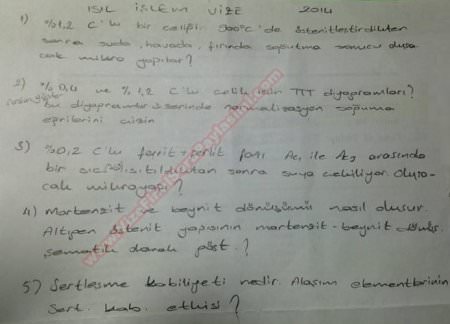 ISIL İŞLEM VİZE 2014
1) %1,2 C'lu bir çeliği 900°C'de östenitleştirdikten
sonra suda, havada, fırında soğutma sonucu oluşa-
cak mikro yapılar?
2) %0,4 ve %1,2 C'lu çelik için TTT diyagramları?
bu diyagramlar üzerinde normalizasyon soğuma
eğrilerini çizin
3) %0,2 C'lu ferrit+perlit fazı Ac1 ile Ac3 arasında
bir ısıtıldıktan sonra suya çekiliyor. Oluşa-
cak mikroyapı?
4) Martenzit ve beynit dönüşümü nasıl oluşur.
östenit yapısının martenzit-beynit dönüş.
şematik olarak göst.?
5) Sertleşme kabiliyeti nedir. Alaşım elementlerinin
Sert. kab. etkisi?